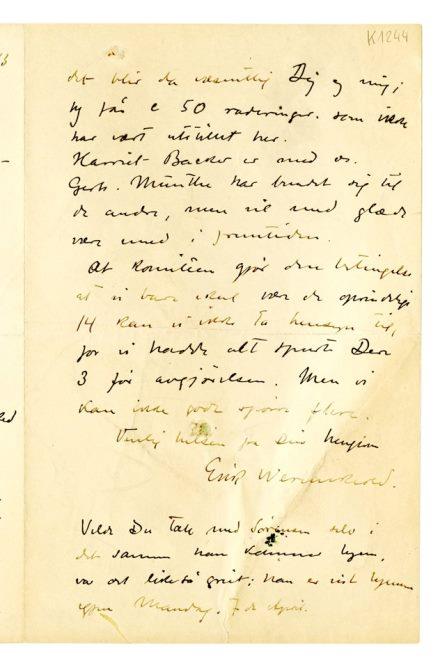 K1244
det blir da væsentlig Dig og mig;
jeg har c 50 raderinger. som ikke
har vært utstillet her.
Harriet Backer er med os.
Gerh. Munthe har bundet sig til
de andre, men vil med glæde
være med i fremtiden.
At komiteen gjør den betingelse
at vi bare skal være de oprindelige
14 kan vi ikke ta hensyn til,
for vi hadde alt spurt Dere
3 før avgjørelsen. Men vi
kan ikke godt spørre flere.
Venlig hilsen fra Din hengivne
Erik Werenskiold.
Vilde Du tale med Sørensen selv i
det samme han kommer hjem,
var det like så greit; han er vist hjemme
igjen Mandag, 7de April.